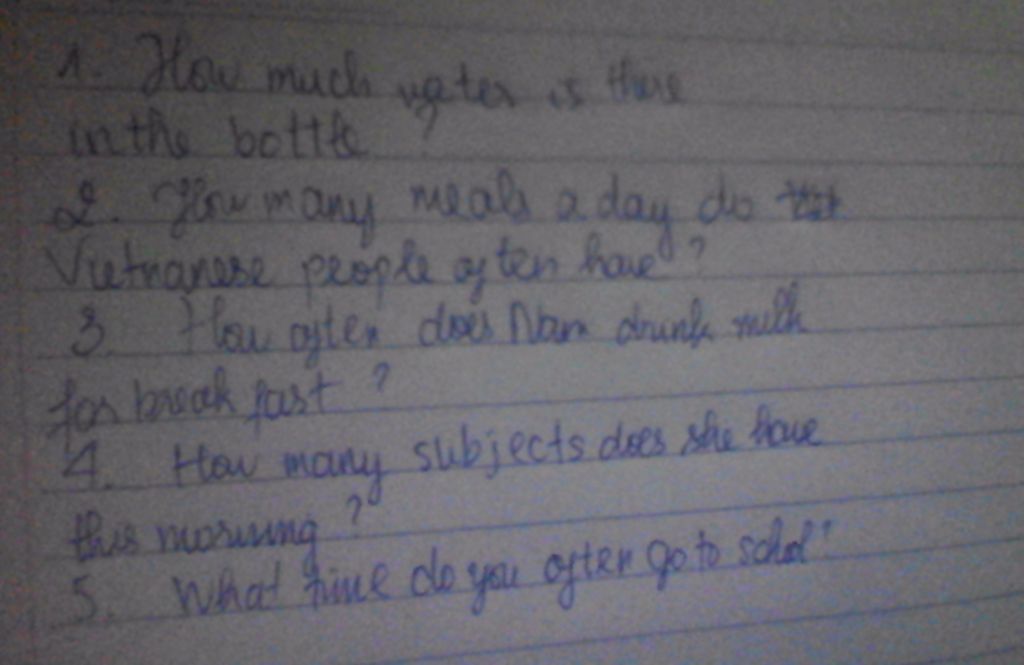 1. How much water is there
in the bottle ?
2. How many meals a day do
Vietnanese people often have ?
3. How often does Nam drink milk
for break fast ?
4. How many subjects does she have
this morning ?
5. What time do you often go to school?